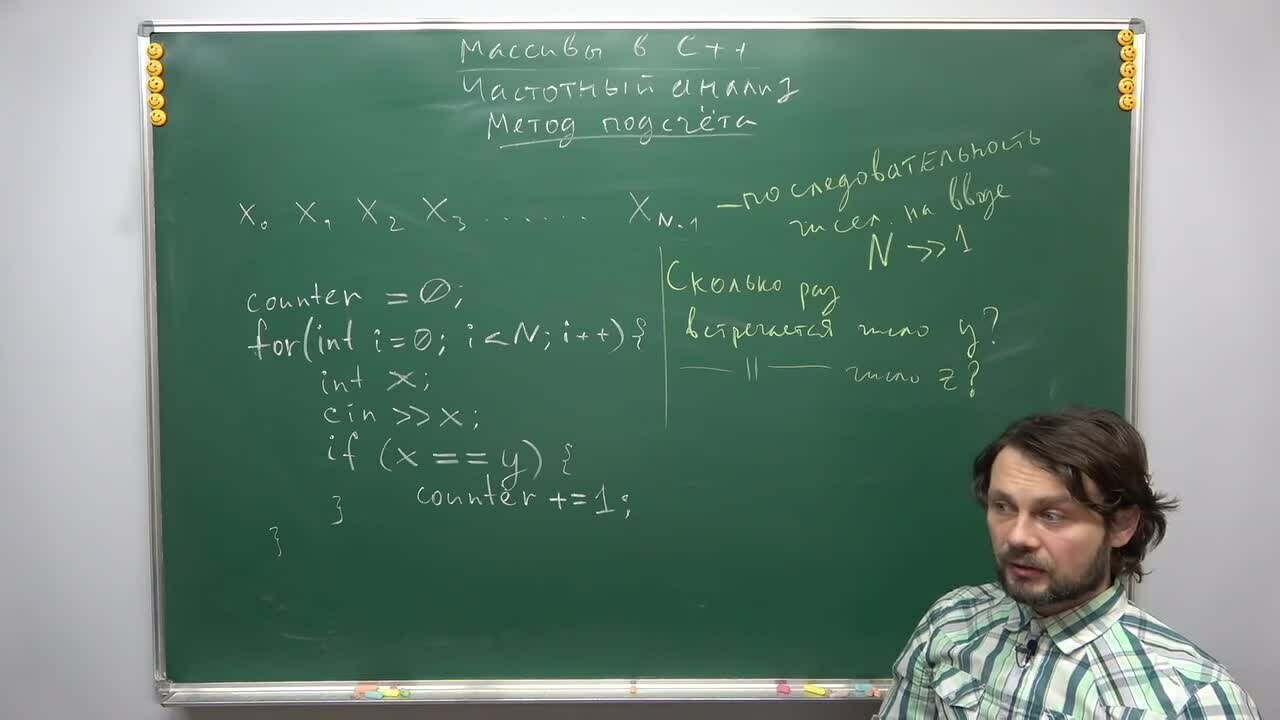 Массивы в C++
Частотный анализ
Метод подсчёта
x₀ x₁ x₂ x₃ ....... x N-1
— последовательность
чисел. на вводе
N >> 1
counter = 0;
for(int i=0; i<N; i++){
int x;
cin >> x;
if (x == y) {
counter += 1;
}
}
Сколько раз
встречается число y?
— || — число z?